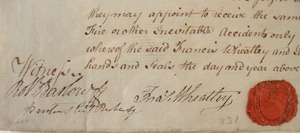 they may appoint to receive the same
Fire or other Inevitable Accidents only
whereof the said Francis Wheatley and
hands and Seals the day and year above
Witness
Robt Barlow
Fras. Wheatley